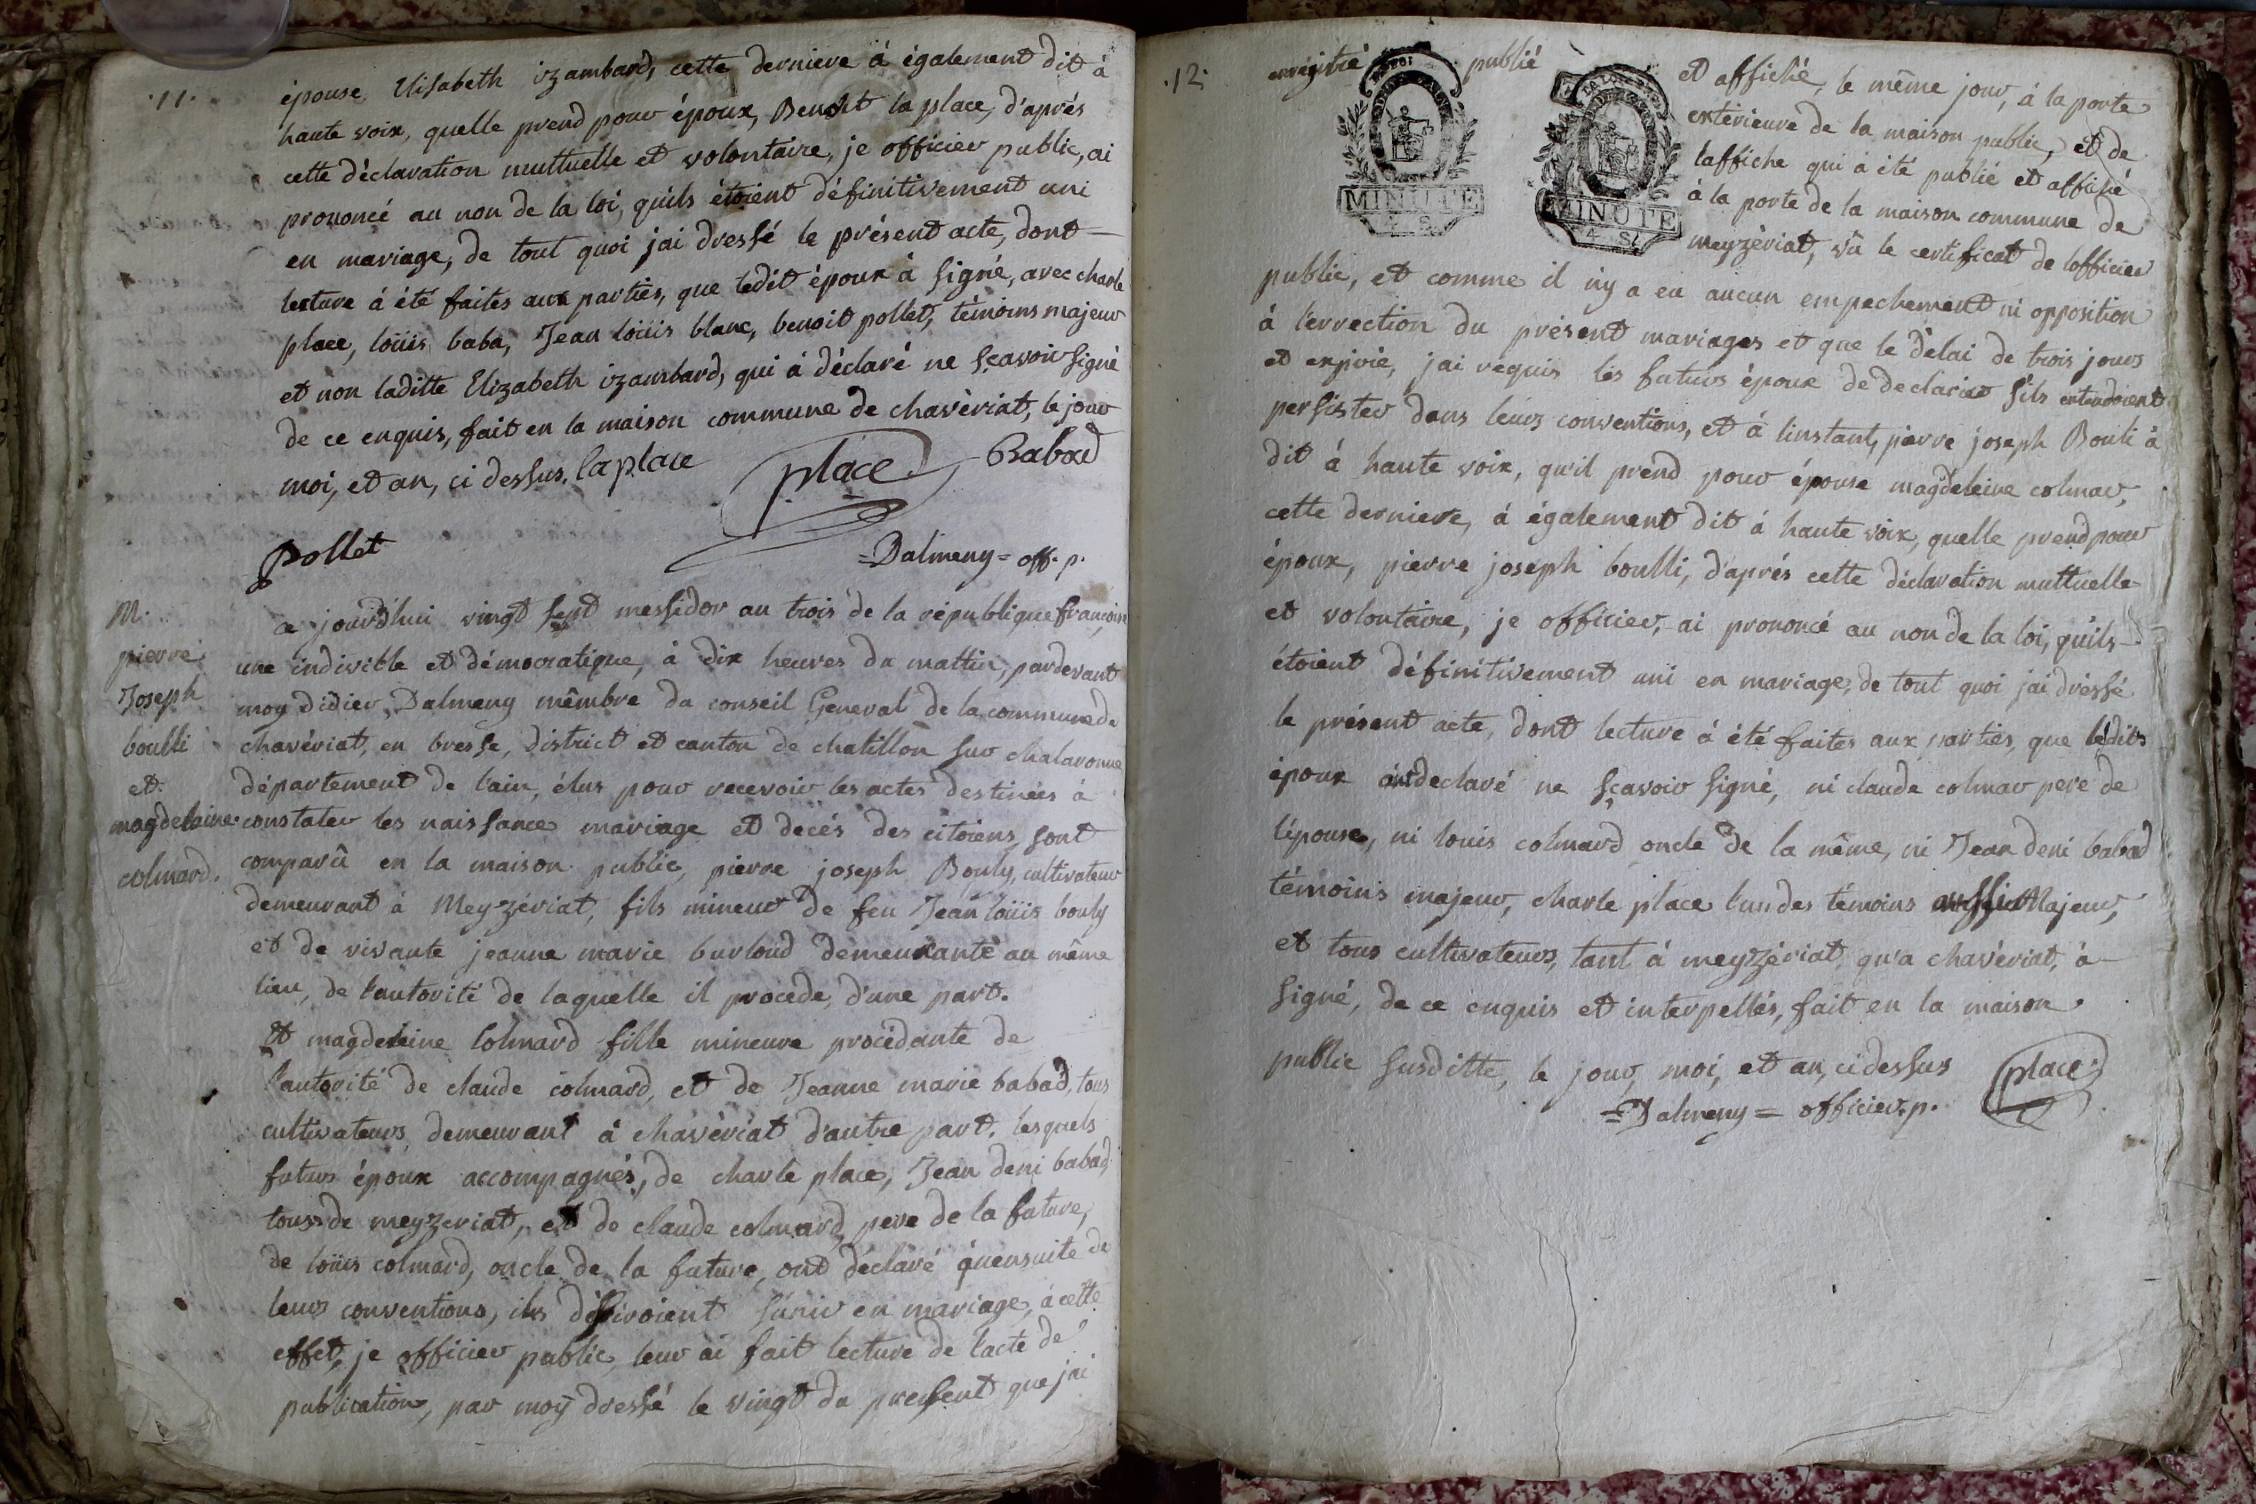 .11.
épouse Elisabeth izambard, cette derniere à également dit à
haute voix, quelle prend pour époux, Benoit la place, d'aprés
cette déclaration muttuelle et volontaire, je officier public, ai
prononcé au non de la loi, quils étoient définitivement uni
en mariage, de tout quoi jai dressé le présent acte, dont
lecture à été faites aux parties, que ledit époux à signé, avec charle
place, loüis baba, Jean loüis blanc, benoit pollet, témoins majeur
et non laditte Elizabeth izambard, qui à déclaré ne sçavoir signé
de ce enquis, fait en la maison commune de chavériat, le jour
moi, et an, ci dessus. laplace place Babad
pollet =Dalmeny= off. p.
M.
pierre
Joseph
boulli
et
magdelaine
colmard.
ce jourd'hui vingt sept messidor an trois de la république françoise
une indivisible et démocratique, à dix heures du mattin, pardevant
moy didier Dalmeny mêmbre du conseil Géneral de la commune de
chavériat, en bresse, district et canton de chatillon sur chalaronne
département de l'ain, élus pour recevoir les actes destinées à
constater les naissance mariage et decés des citoiens, sont
comparû en la maison public, pierre joseph Bouly, cultivateur
demeurant à Meyzériat, fils mineur de feu Jean loüis bouly
et de vivante jeanne marie burloud demeurante au même
lieu, de l'autorité de laquelle il procede, d'une part.
et magdeleine Colmard fille mineure procédante de
l'autorité de claude colmard, et de Jeanne marie babad, tous
cultivateurs demeurant à chavériat d'autre part. lesquels
futurs époux accompagnés, de charle place, Jean deni babad,
tous de meyzeriat, et de claude colmard, pere de la future,
de loüis colmard, oncle de la future, ont déclaré quensuite de
leurs conventions, ils désiroient sunir en mariage, à cette
effet, je officier public, leur ai fait lecture de l'acte de
publication, par moÿ dressé le vingt du present que jai
.12.
enrégitré publié et affiché, le même jour, à la porte
MINUTE
4. S.
MINUTE
4. S.
extérieure de la maison public, et de
l'affiche qui à été publié et affiché
à la porte de la maison commune de
meyzériat, vû le certificat de lofficier
public, et comme il n'y a eu aucun empechement ni opposition
à l'errection du présent mariages et que le délai de trois jours
et expirée, jai réquis les futurs époux de declarer sils entendoient
persister dans leurs conventions, et à linstant, pierre joseph Bouli à
dit à haute voix, qu'il prend pour épouse magdeleine colmar,
cette derniere, à également dit à haute voix, quelle prend pour
époux, pierre joseph boulli, d'aprés cette déclaration muttuelle
et volontaire, je officier, ai prononcé au non de la loi, quils
étoient définitivement uni en mariage, de tout quoi jai dressé
le présent acte, dont lecture à été faites aux parties, que lédits
époux ont declaré ne sçavoir signé, ni claude colmar pere de
l'épouse, ni louis colmard oncle de la même, ni Jean deni babad
témoins majeur, charle place l'un des témoins aussi Majeur,
et tous cultivateurs, tant à meyzériat, qu'a chavériat, à
signé, de ce enquis et interpellés, fait en la maison
public susditte, le jour, moi, et an, ci dessus place
=Dalmeny= officier. p.